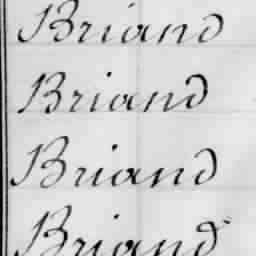 Briand
Briand
Briand
Briand